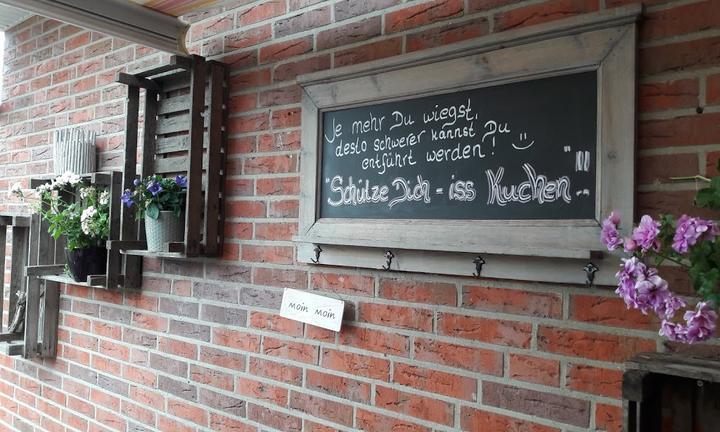 Je mehr Du wiegst,
desto schwerer kannst Du
entführt werden! :)
"Schütze Dich - iss Kuchen"!!!
moin moin